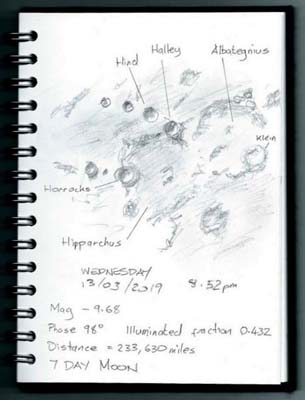 Halley
Albategnius
Hind
Klein
Horrocks
Hipparchus
WEDNESDAY
13/03/2019 8.52pm
Mag - 9.68
Phase 98° Illuminated fraction 0.432
Distance = 233,630 miles
7 DAY MOON